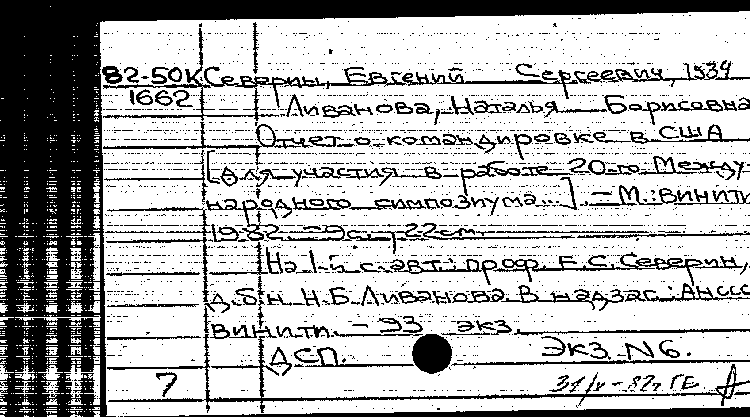 82-50К Северин, Евгений Сергеевич, 1934
1662 Ливанова, Наталья Борисовна
Отчет о командировке в США
[для участия в работе 20-го Между-
народного симпозиума...]. - М.: ВИНИТИ
1982. - 9с.; 22см.
На 1-й с. авт.: проф. Е.С. Северин,
д.б.н. Н.Б. Ливанова. В надзаг.: АНССС
ВИНИТИ. - 93 экз.
ДСП. Экз. N6.
7 31/V-82г.